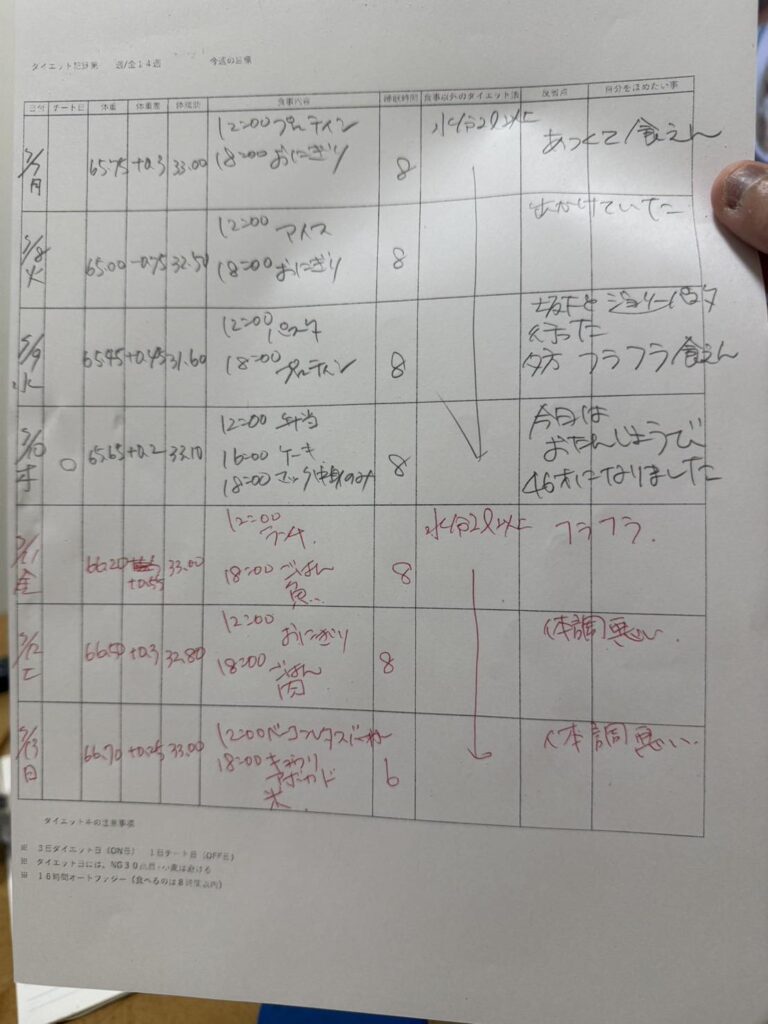 ダイエット記録表 週/全14週 今週の目標
日付 チート日 体重 体重差 体脂肪 食事内容 睡眠時間 食事以外のダイエット法 反省点 自分をほめたい事
月 65.75 +0.3 33.00 12:00 プロテイン 8 水分2l以上 あつくて食えん
18:00 おにぎり
火 65.00 -0.75 32.50 12:00 アイス 8 出かけていた
18:00 おにぎり
水 65.45 +0.45 31.60 12:00 パスタ 8 ジョリーパスタ
行った
18:00 プロテイン 夕方 フラフラ 食えん
木 ○ 65.65 +0.2 33.10 12:00 弁当 8 今日は
16:00 ケーキ おたんじょうび
18:00 マック中身のみ 46才になりました
金 66.20 +0.55 33.00 12:00 8 水分2l以上 フラフラ.
18:00 ごはん
魚
土 66.50 +0.3 32.80 12:00 おにぎり 8 体調悪い
18:00 ごはん
肉
日 66.70 +0.25 33.00 12:00 ベーコンレタスバーガー 6 体調悪い
18:00 キュウリ
アボカド
米
ダイエット中の注意事項
※ 3日ダイエット日(ON日) 1日チート日(OFF日)
※ ダイエット日には、NG30は避ける
※ 16時間オートファジー(食べるのは8時間以内)